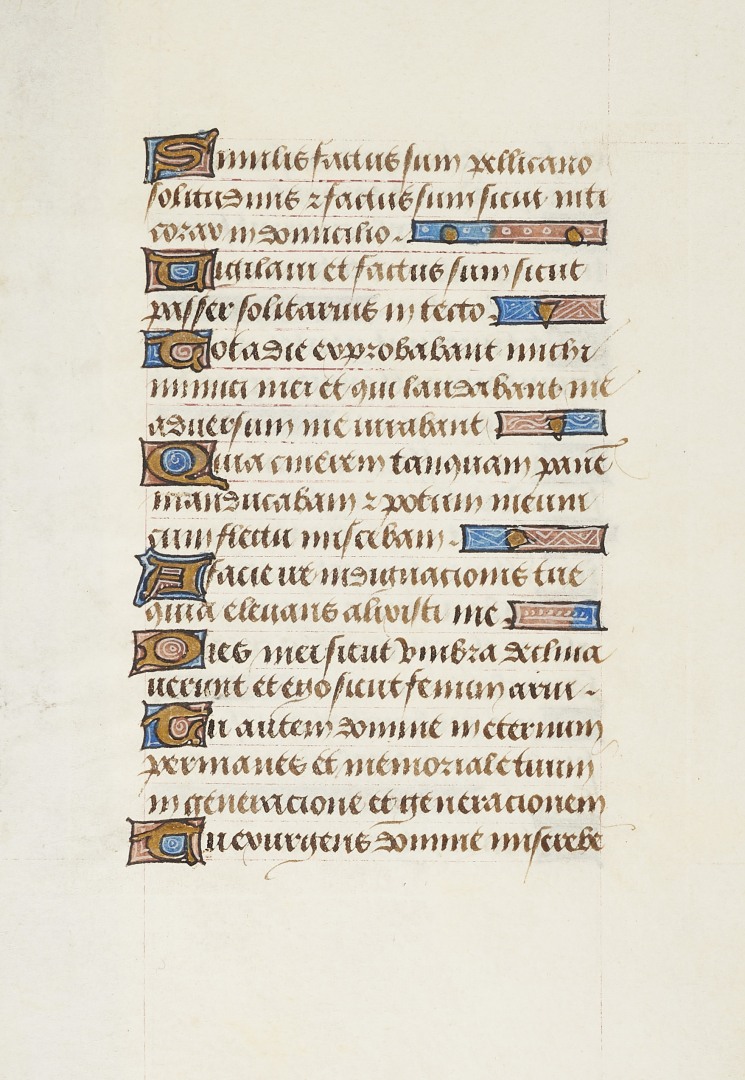 Similis factus sum pellicano
solitudinis ⁊ factus sum sicut niti
corax in domicilio.
Uigilaui et factus sum sicut
passer solitarius in tecto.
Tota die exprobabant michi
inimici mei et qui laudabant me
aduersum me iurabant
Quia cinerem tanquam panē
manducabam ⁊ potum meum
cum fletu miscebam.
A facie ire indignacionis tue
quia eleuans alixisti me.
Dies mei sicut vmbra declina
uerunt et ego sicut fenum arui.
Tu autem domine in eternum
permanes et memoriale tuum
in generacione et generacionem
Tu exurgens domine miserebe